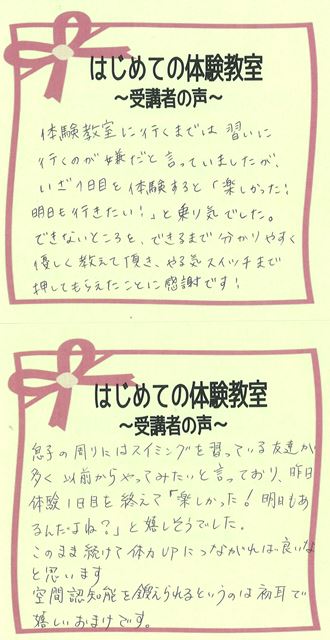 はじめての体験教室
～受講者の声～
体験教室に行くまでは習いに
行くのが嫌だと言っていましたが、
いざ1日目を体験すると「楽しかった!
明日も行きたい!」と乗り気でした。
できないところを、できるまで分かりやすく
優しく教えて頂き、やる気スイッチまで
押してもらえたことに感謝です!
はじめての体験教室
～受講者の声～
息子の周りにはスイミングを習っている友達が
多く以前からやってみたいと言っており、昨日
体験1日目を終えて「楽しかった!明日もあ
るんだよね?」と嬉しそうでした。
このまま続けて体力UPにつながれば良いな
と思います
空間認知能を鍛えられるというのは初耳で
嬉しいおまけです。